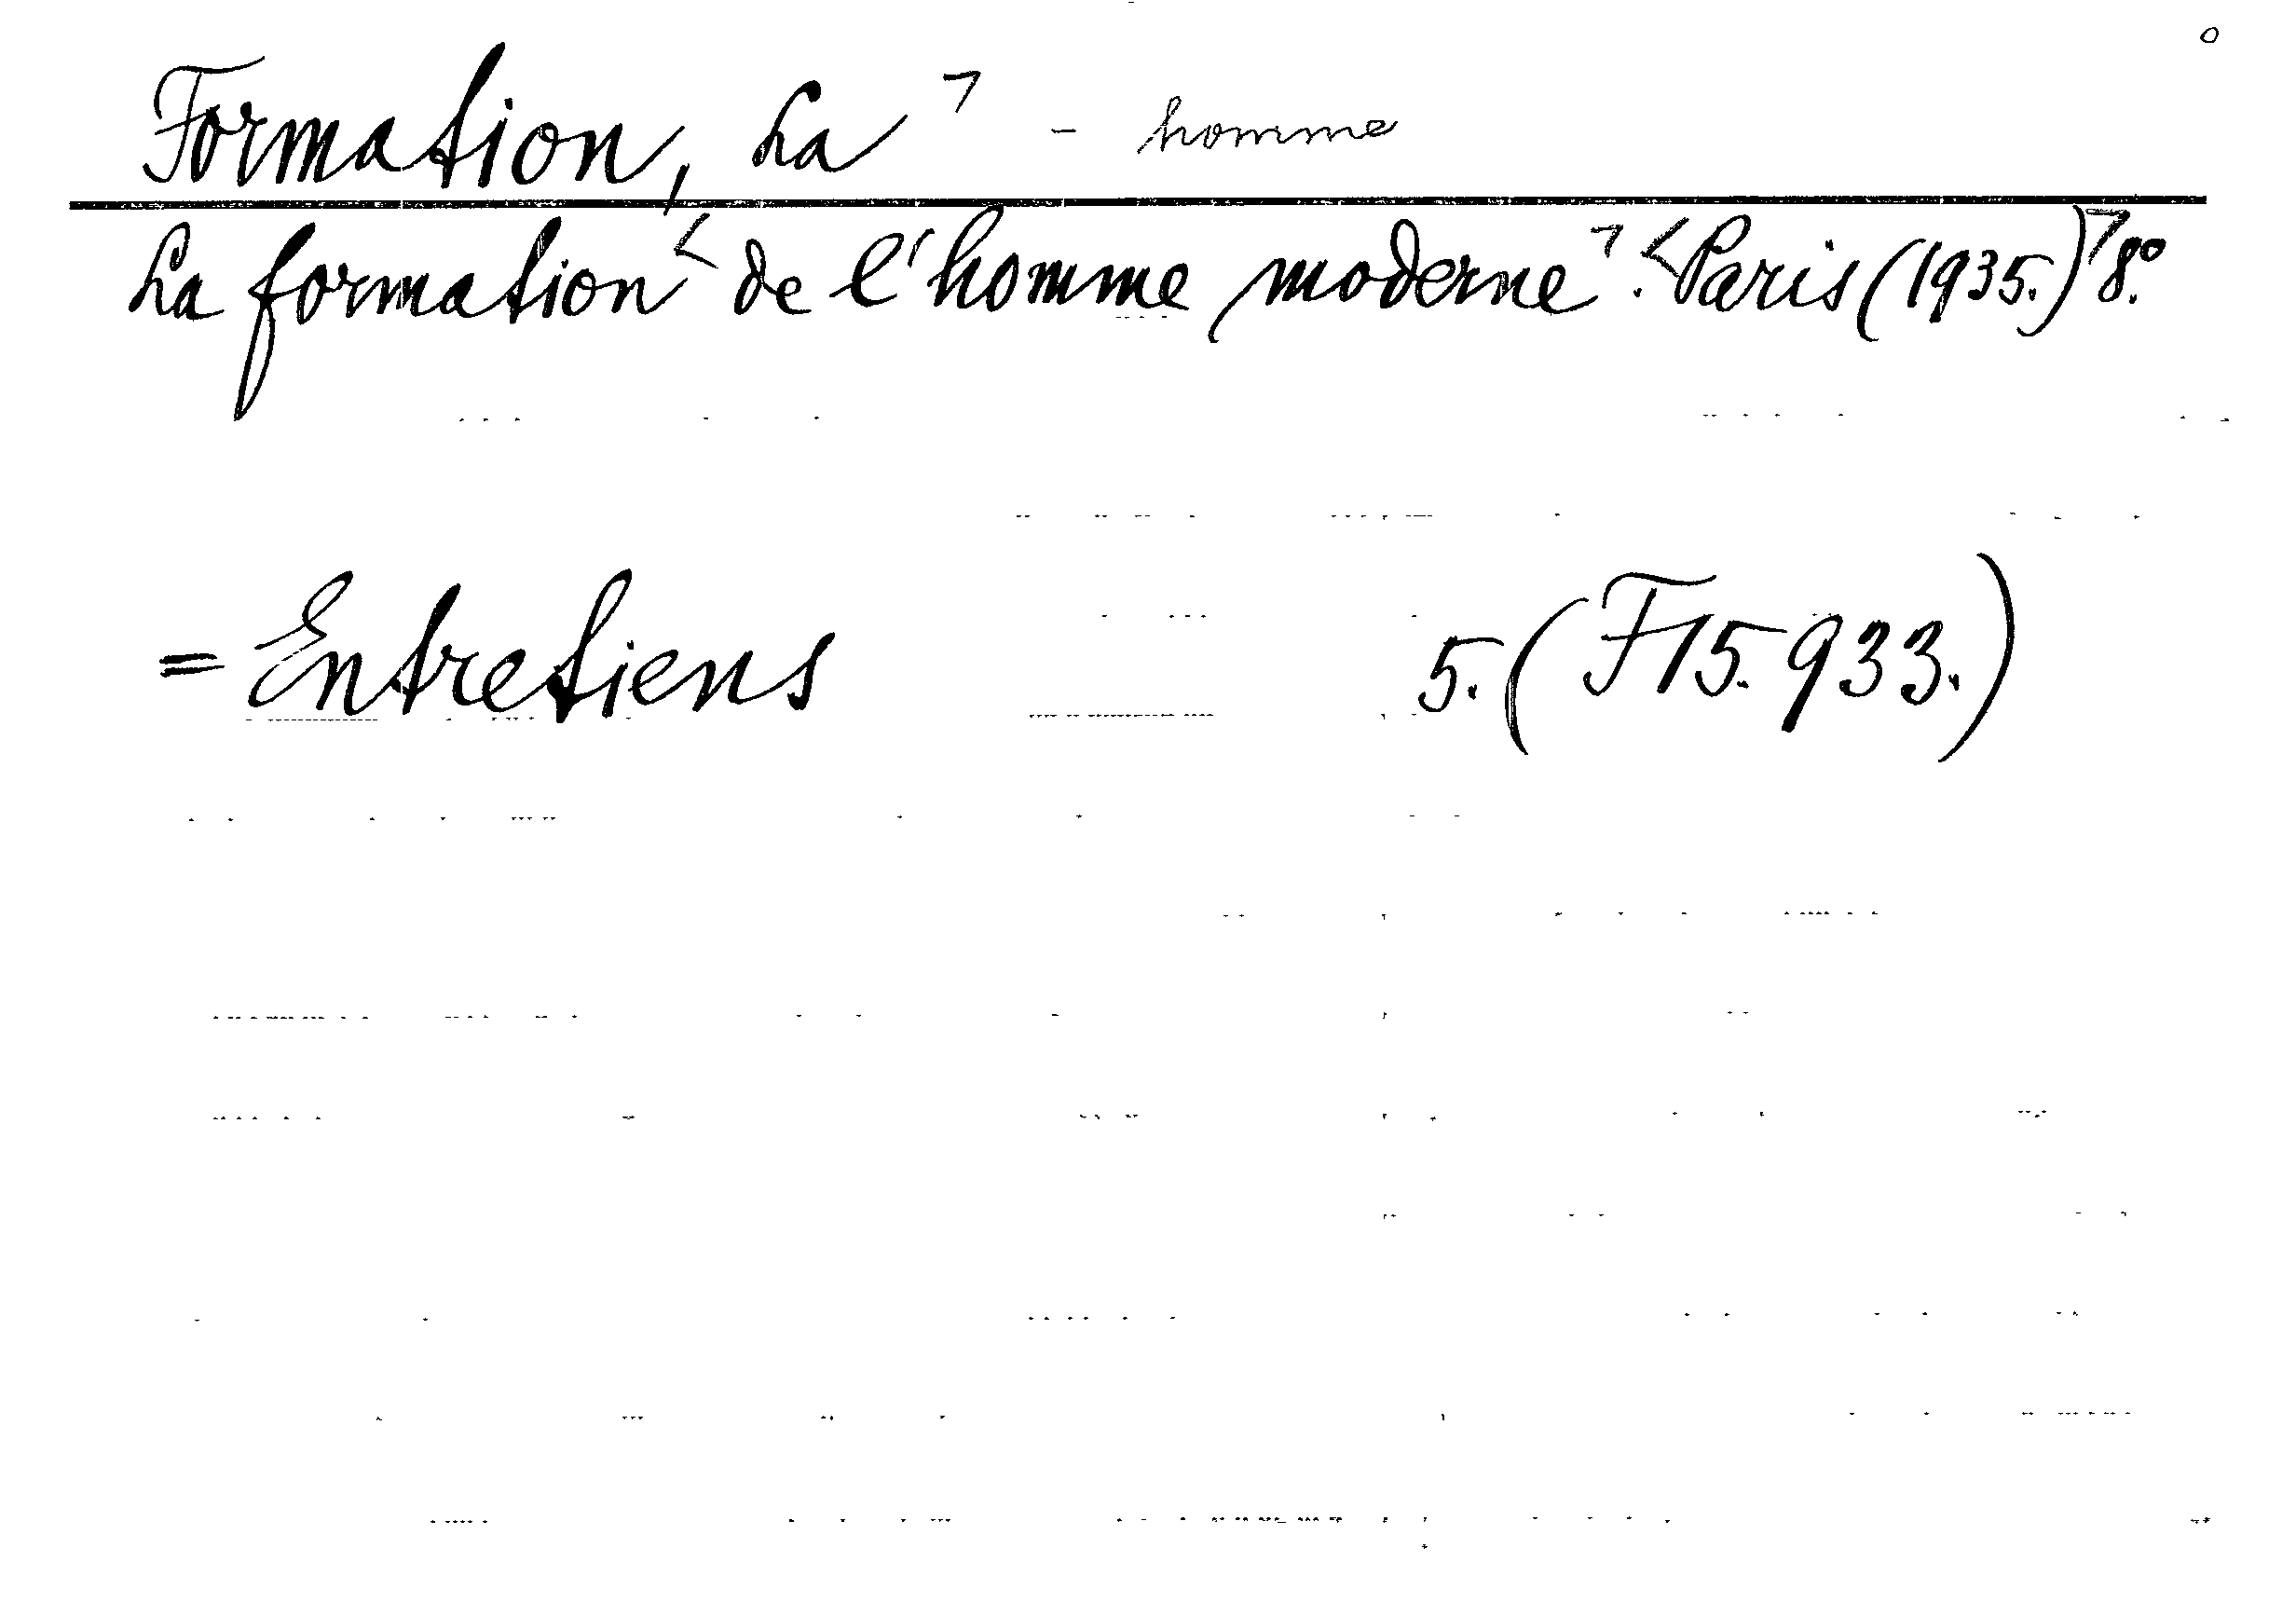 Formation, La ⌝ - homme
La formation < de l'homme moderne ⌝. < Paris (1935.) ⌝ 8.º
= Entretiens 5. (F 15.933.)